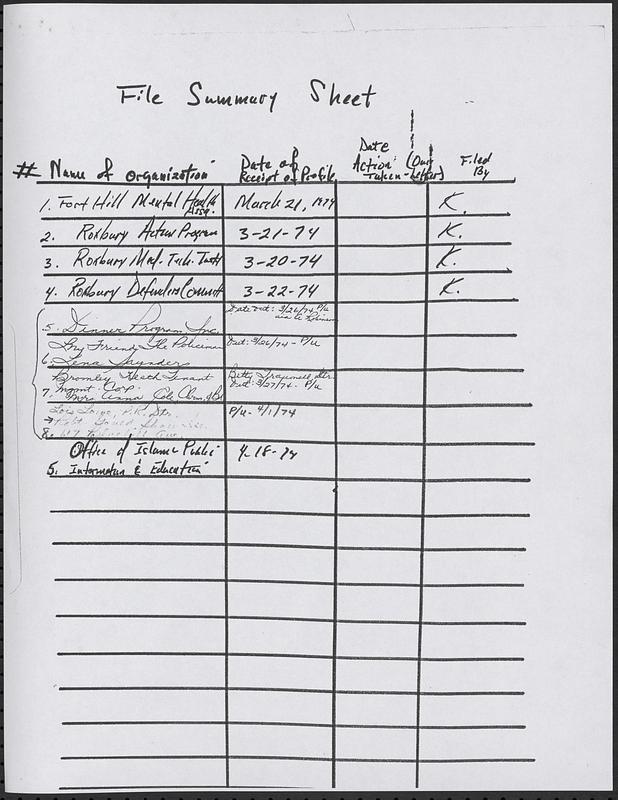 File Summary Sheet
# Name of organization Date of Receipt of Profile Date Action Taken - (Our Letter) Filed By
1. Fort Hill Mental Health Assn. March 21, 1974 K.
2. Roxbury Action Program 3-21-74 K.
3. Roxbury Med. Tech. Instt 3-20-74 K.
4. Roxbury Defenders Committ 3-22-74 K.
Date out: 3/26/74 P/u
5. Dinner Program, Inc.
Friend, The Policeman Out: 3/26/74 - P/u
6. Lena Saunders
Bromley Heath Tenant Betty
Mgmt. Corp. Out: 3/27/74. P/u
7. Mrs Anna Cole
P.R. Dir. P/u - 4/1/74
8.
Office of Islamic Public 4-18-74
5. Information & Education